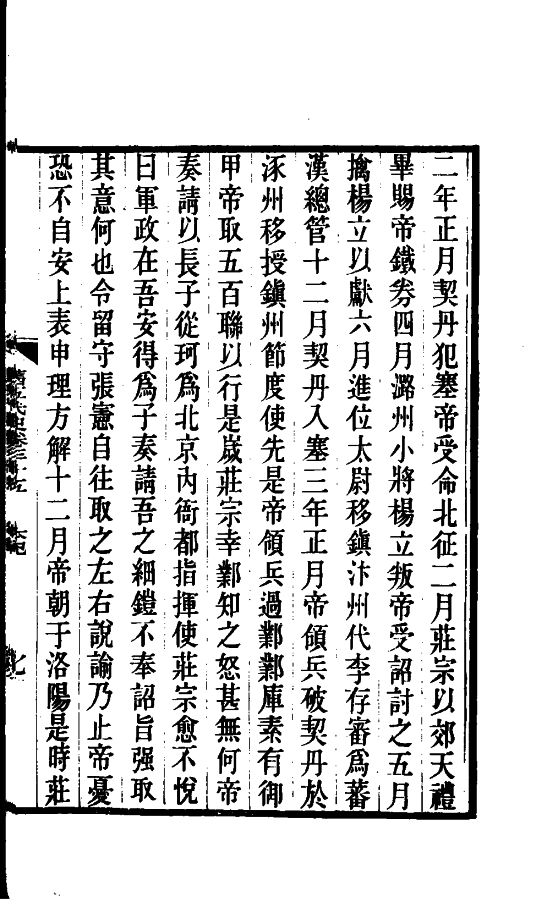 二年正月契丹犯塞帝受命北征二月莊宗以郊天禮
畢賜帝鐵券四月潞州小將楊立叛帝受詔討之五月
擒楊立以獻六月進位太尉移鎮汴州代李存審爲蕃
漢總管十二月契丹入塞三年正月帝領兵破契丹於
涿州移授鎮州節度使先是帝領兵過鄴鄴庫素有御
甲帝取五百聯以行是嵗莊宗幸鄴知之怒甚無何帝
奏請以長子從珂爲北京內衙都指揮使莊宗愈不悅
曰軍政在吾安得爲子奏請吾之細鎧不奉詔旨强取
其意何也令留守張憲自往取之左右說諭乃止帝憂
恐不自安上表申理方解十二月帝朝于洛陽是時莊